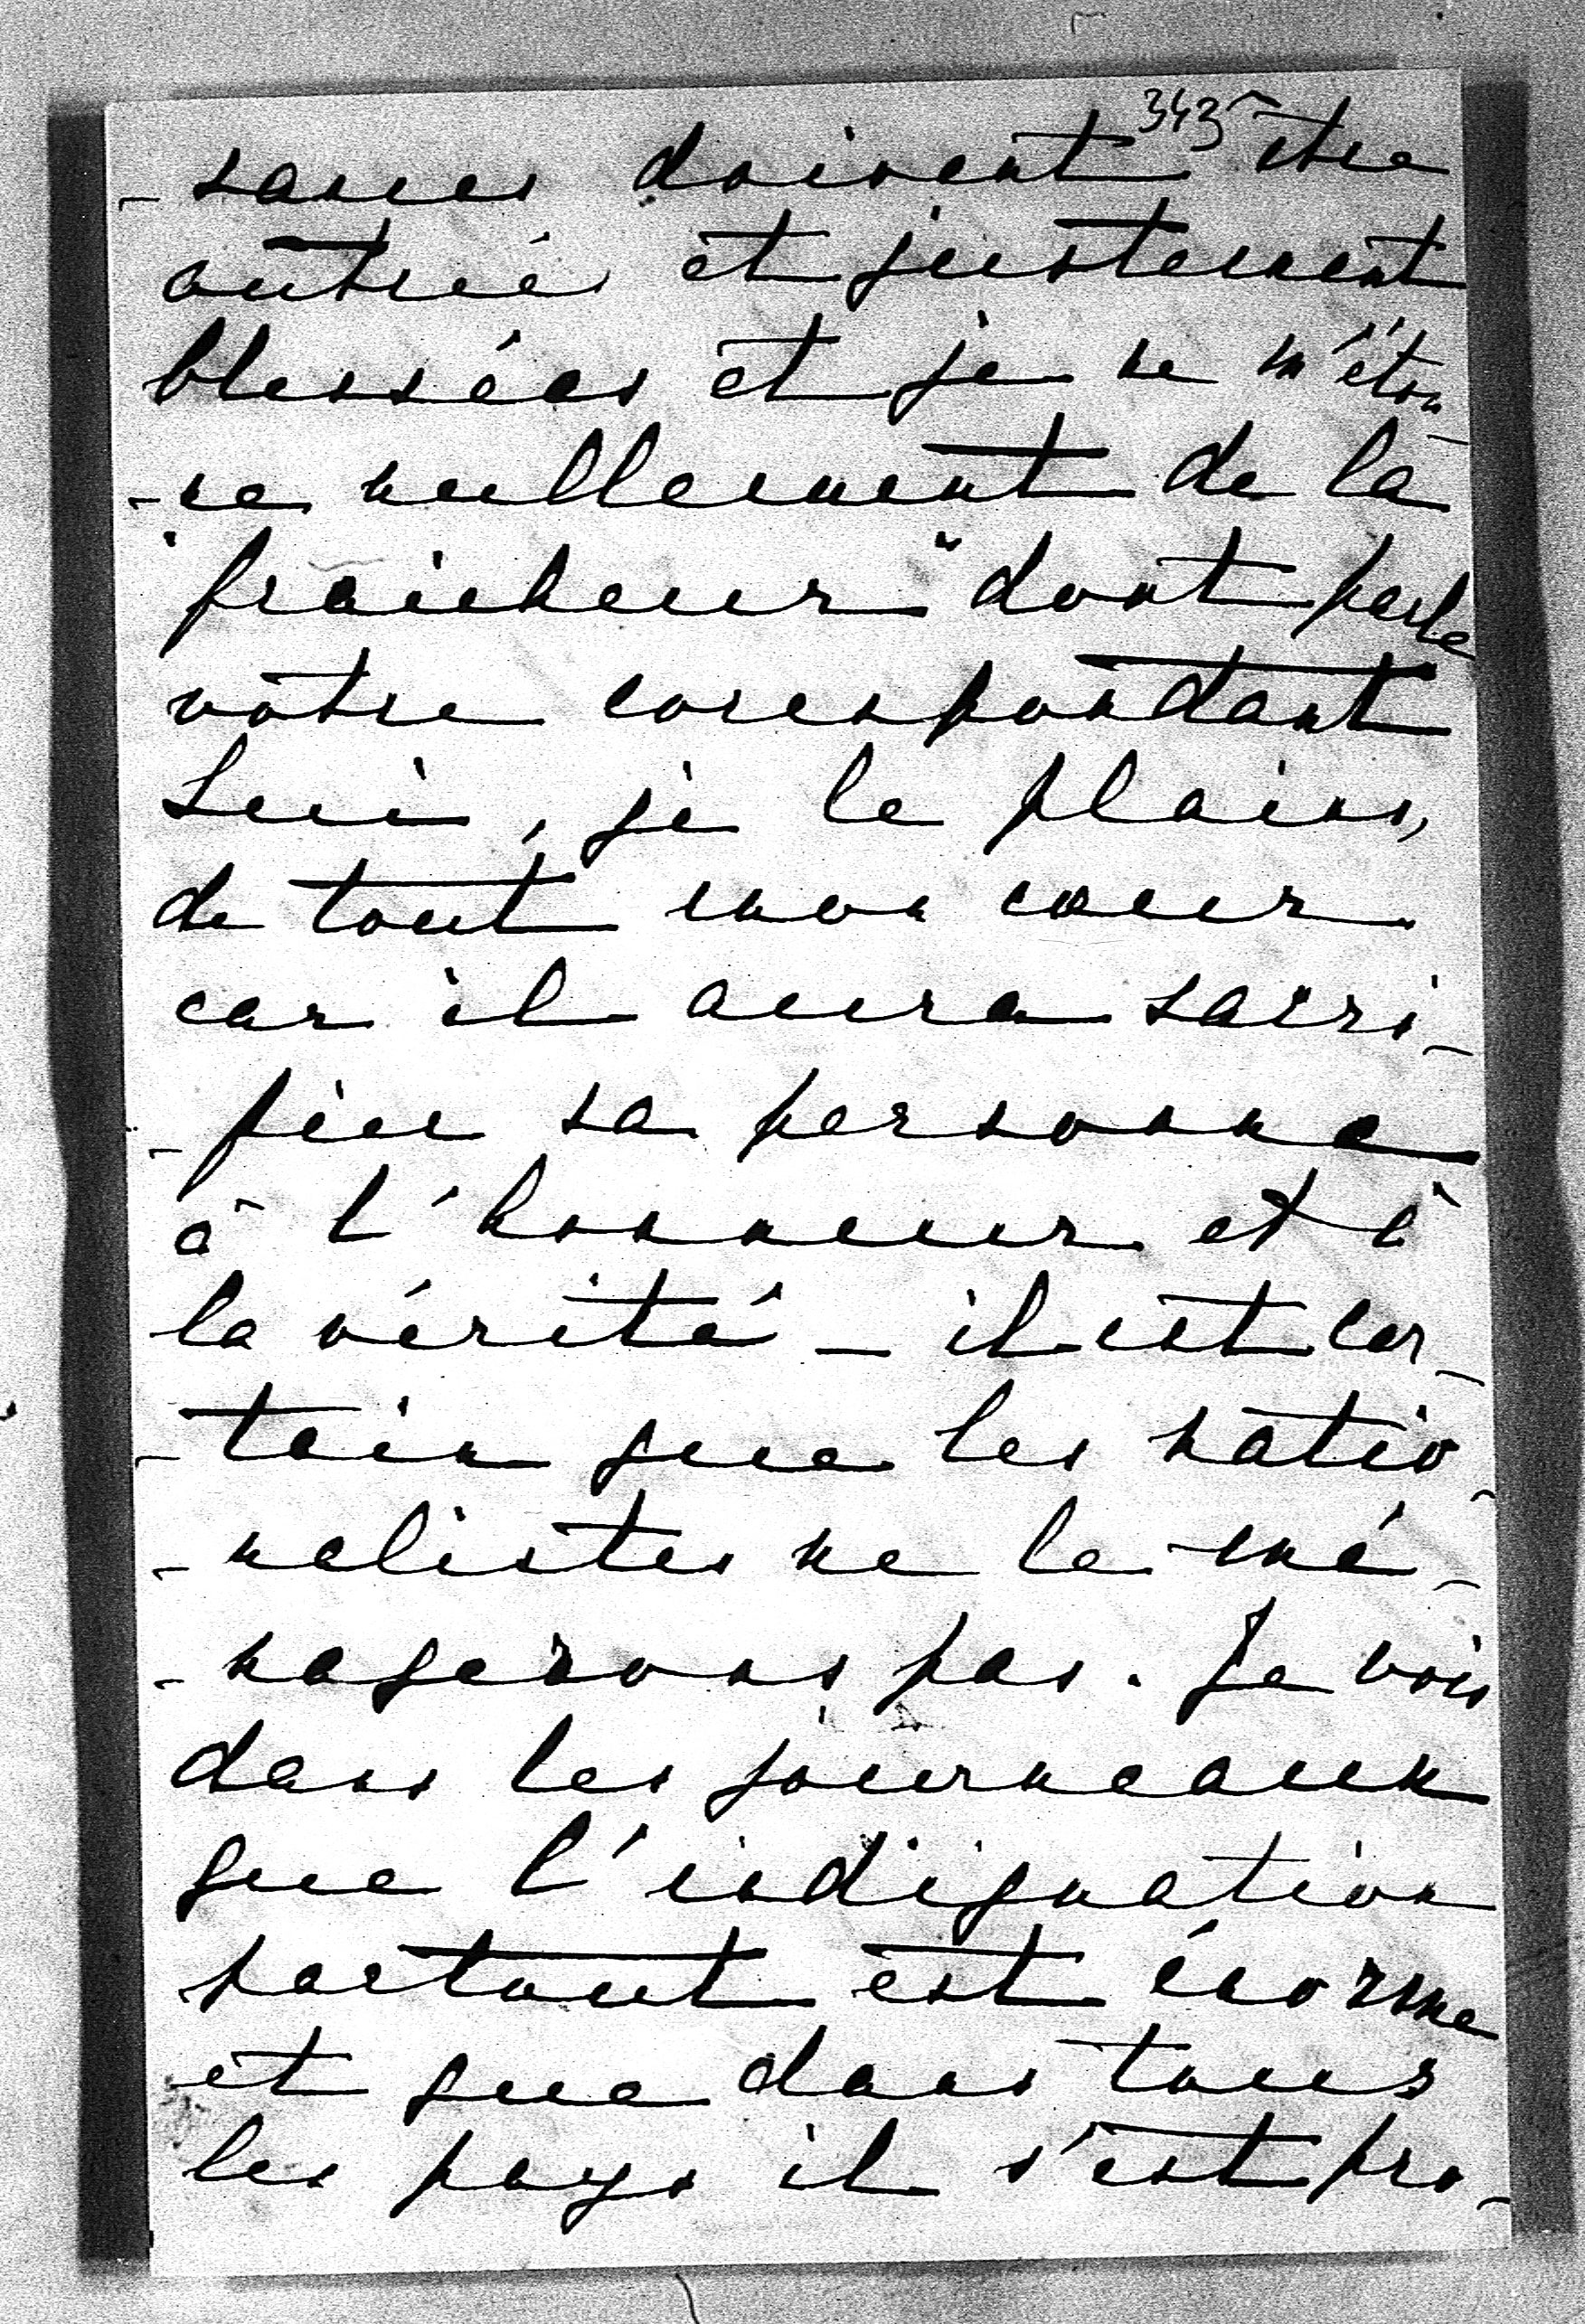 343
-sances doivent être
outrées et justement
blessées et je ne m'éton-
-ne nullement de la
"fraicheur" dont parle
votre corespondant
Lui, je le plains,
de tout mon cœur
car il aura sacri-
-fier sa personne
à l'honneur et à
la vérité – il est cer-
-tain que les natio-
-nalistes ne le mé-
-nagerons pas. Je vois
dans les journeaux
que l'indignation
partout est énorme
et que dans tous
les pays il s'est pro-